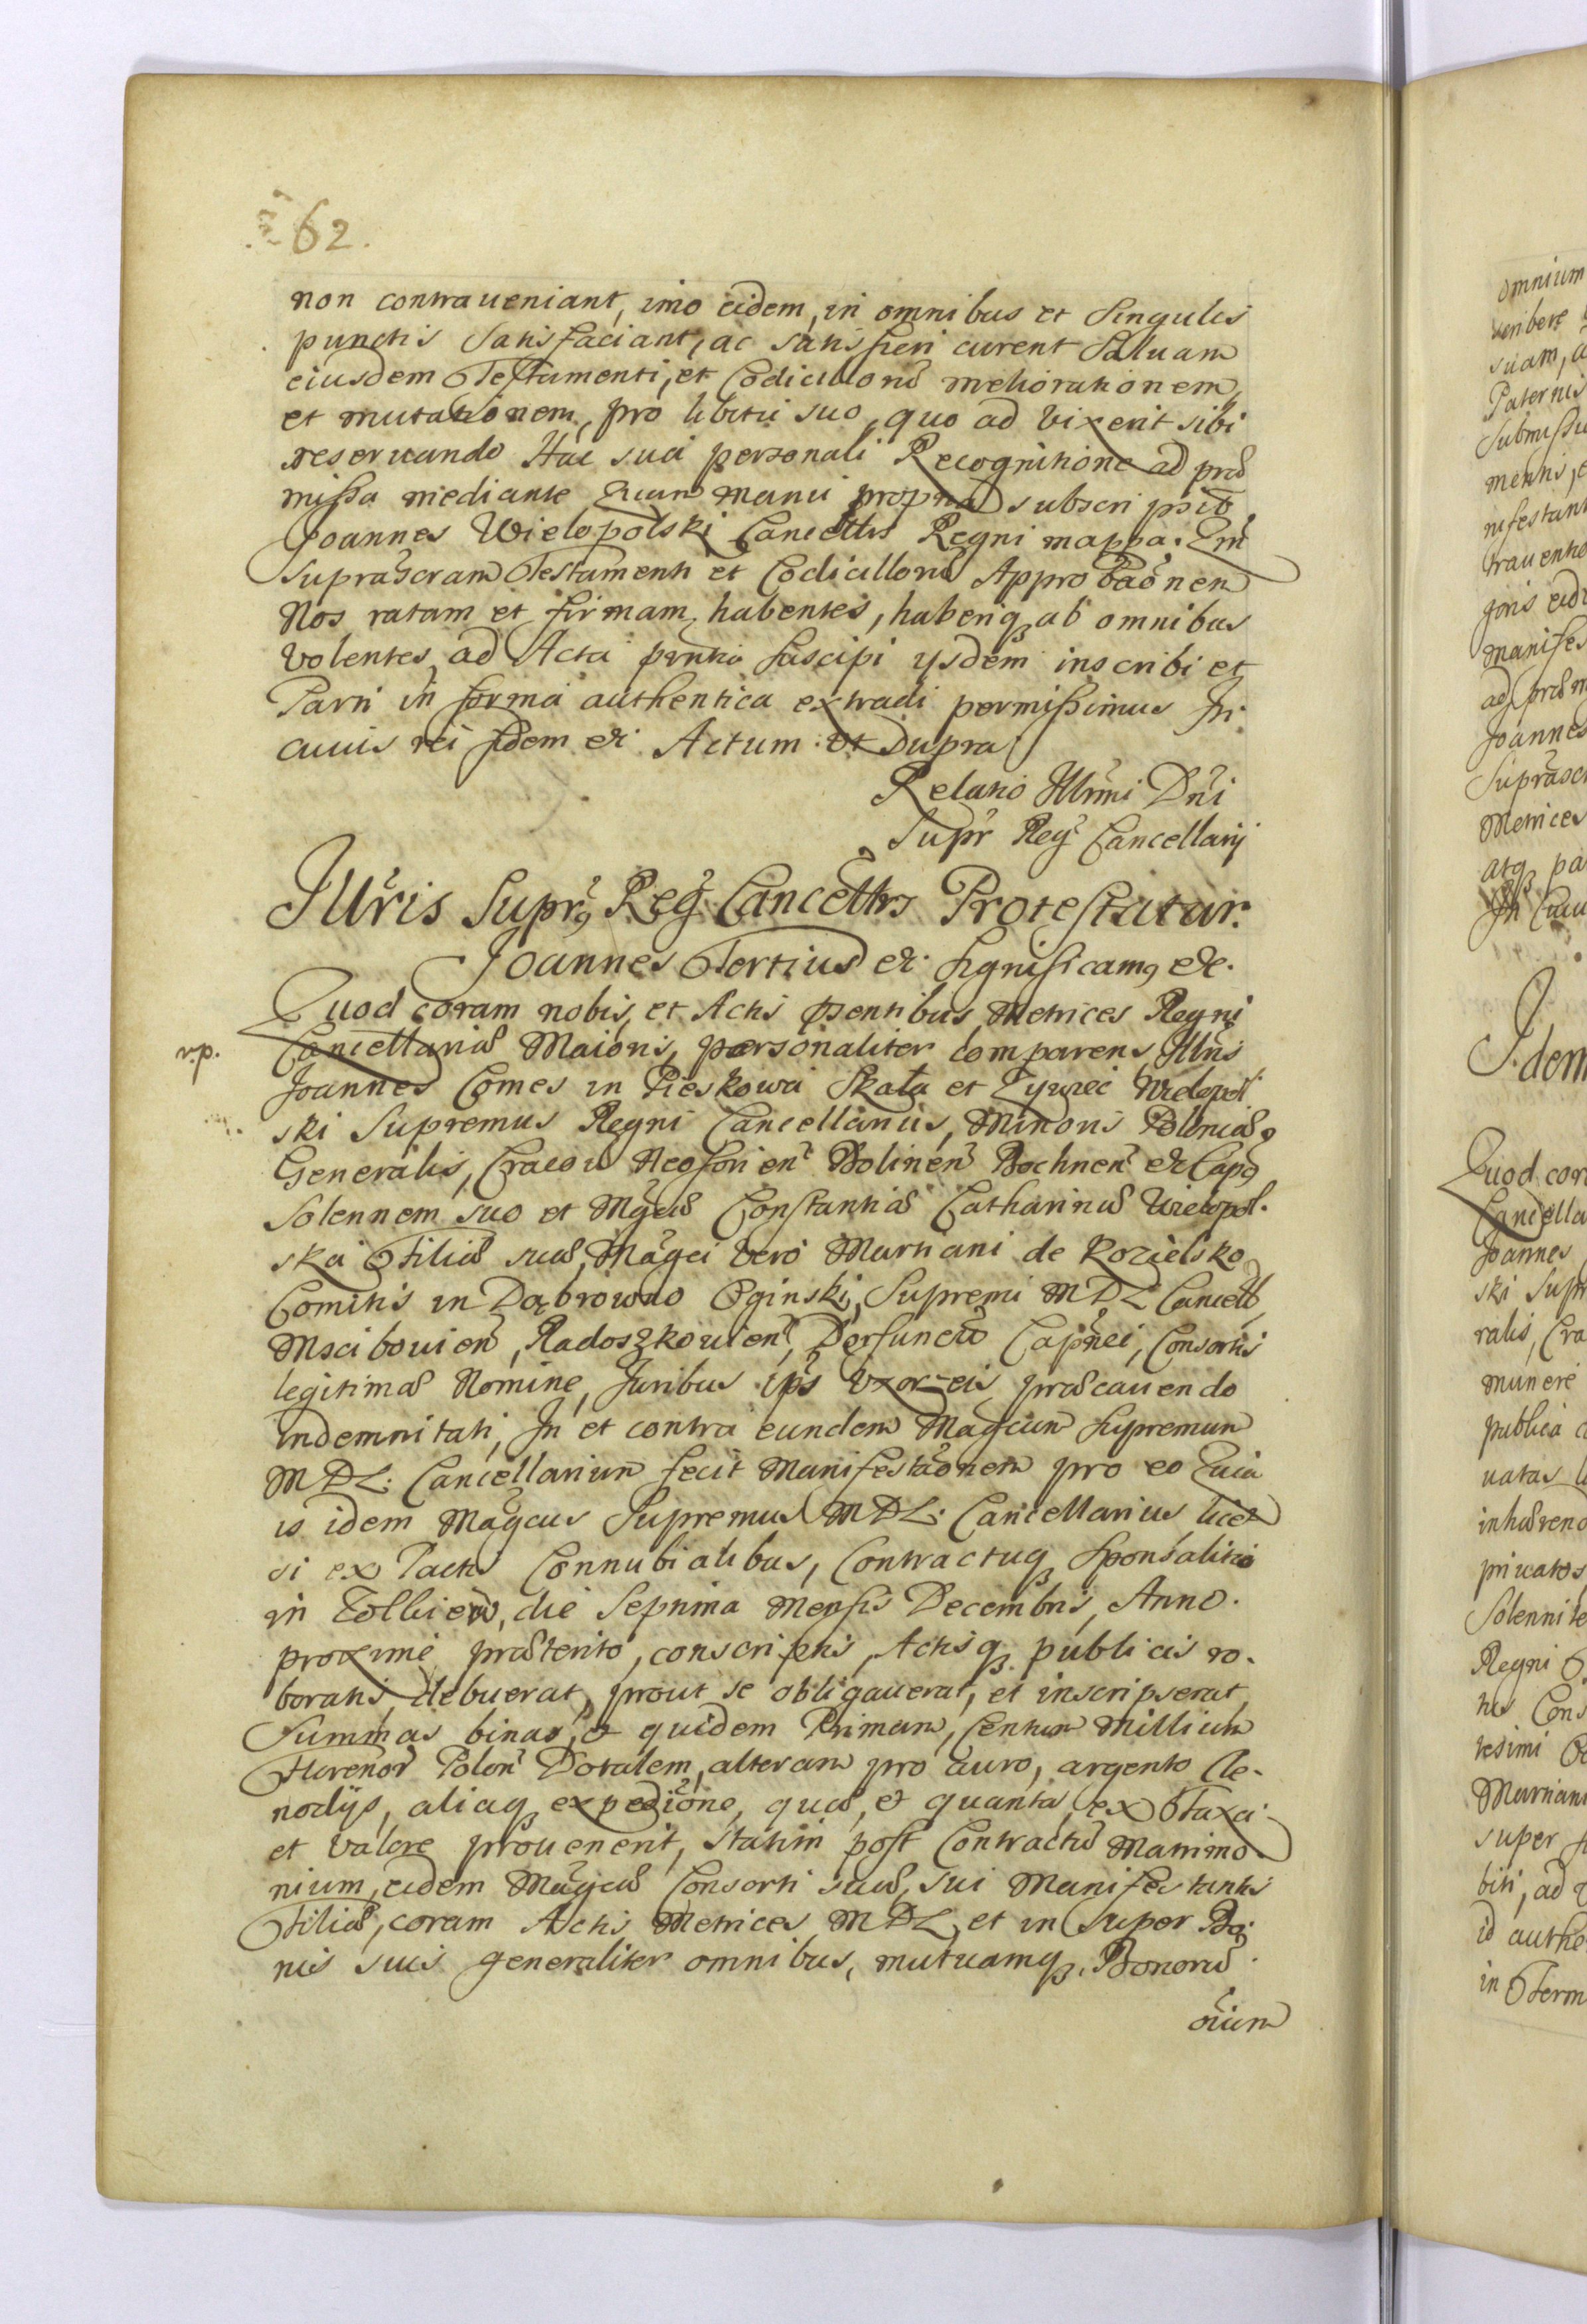 62.
non contraueniant, imo eidem, in omnibus et Singulis
punctis Satisfaciant, ac satisfieri curent Saluam
eiusdem Testamenti, et Codicillorũ meliorationem,
et mutationem, pro libitu suo, quo ad vixerit sibi
reseruando Hac sua personali Recognitione ad præ
missa mediante Quam manu propria subscripsit
Joannes Wielopolski Cancellrs Regni mappa. Qm̃
suprascram Testamenti et Codicillorũ Approbaõnem
Nos ratam et firmam habentes, haberiq₃ ab omnibus
volentes, ad Acta pñtia suscipi ysdem inscribi et
Parti in forma authentica extradi permissimus In
cuius rei fidem &. Actum ut Supra
Relatio Illrmi Dñi
Supr Regñ Cancellarij
Illris Supr. Regñ Cancellrs Protestatur.
Joannes Tertius &. significamꝰ &.
Quod coram nobis, et Actis psentibus Metrices Regni
Cancellariæ Maioris, personaliter comparens Illris
Joannes Comes in Pieskowa Skała et Zywiec Wielopol
ski Supremus Regni Cancellarius, Minoris Poloniæ,
Generalis, Cracou Neoforien Bolinen Bochnen & Capꝰ
Solennem suo et Mgcæ Constantiæ Catharinæ Wielopol.
ska Filiæ suæ, Magci vero Martiani de Kozielsko
Comitis in Dąbrowno Oginski, Supremi MDL Cancell
Mscibouien, Radoszkouien, Capnei, Consortis
legitimæ Nomine, Juribus ips Uxor-eis præcauendo
indemnitati, In et contra eundem Magcum Supremum
MDL. Cancellarium fecit Manifestaõnem pro eo Quia
is idem Magcus Supremus MDL. Cancellarius, licet
si ex Pactis Connubialibus, Contractuq₃ Sponsalitio
in die Septima Mensis Decembris, Anno.
proxime præterito, conscriptis, Actisq₃ publicis ro.
boratis, debuerat, prout se obligauerat, et inscripserat,
Summas binas, & quidem Primam, Centum Millium
Florenor Polon Dotalem, alteram pro auro, argento Cle.
nodijs, aliaq₃ expeditione, quæ, & quanta, ex Taxa
et valore prouenerit, statim post Contractũ Matrimo
nium, eidem Magcæ Consorti suæ, sui Manifestantis
Filiæ, coram Actis Metrices MDL, et in super Bo
nis suis generaliter omnibus, mutuamq₃, Bonorũ
oium
omnium
scribere
suam, a
Paternis
Submissu
mentis, e
nifestant
trauentio
Manifes
ad præm
Joannes
Suprasc
Metrices
atq₃ pa
In Cuiu
Idem
Quod cor
Cancella
Joannes
ski Supr
ralis, Cra
munere
publica
uatas
inhæreno
priuatos
Solennite
Regni
tis Cons
tesimi
Martiani
super
biti, ad
id authe
in Term